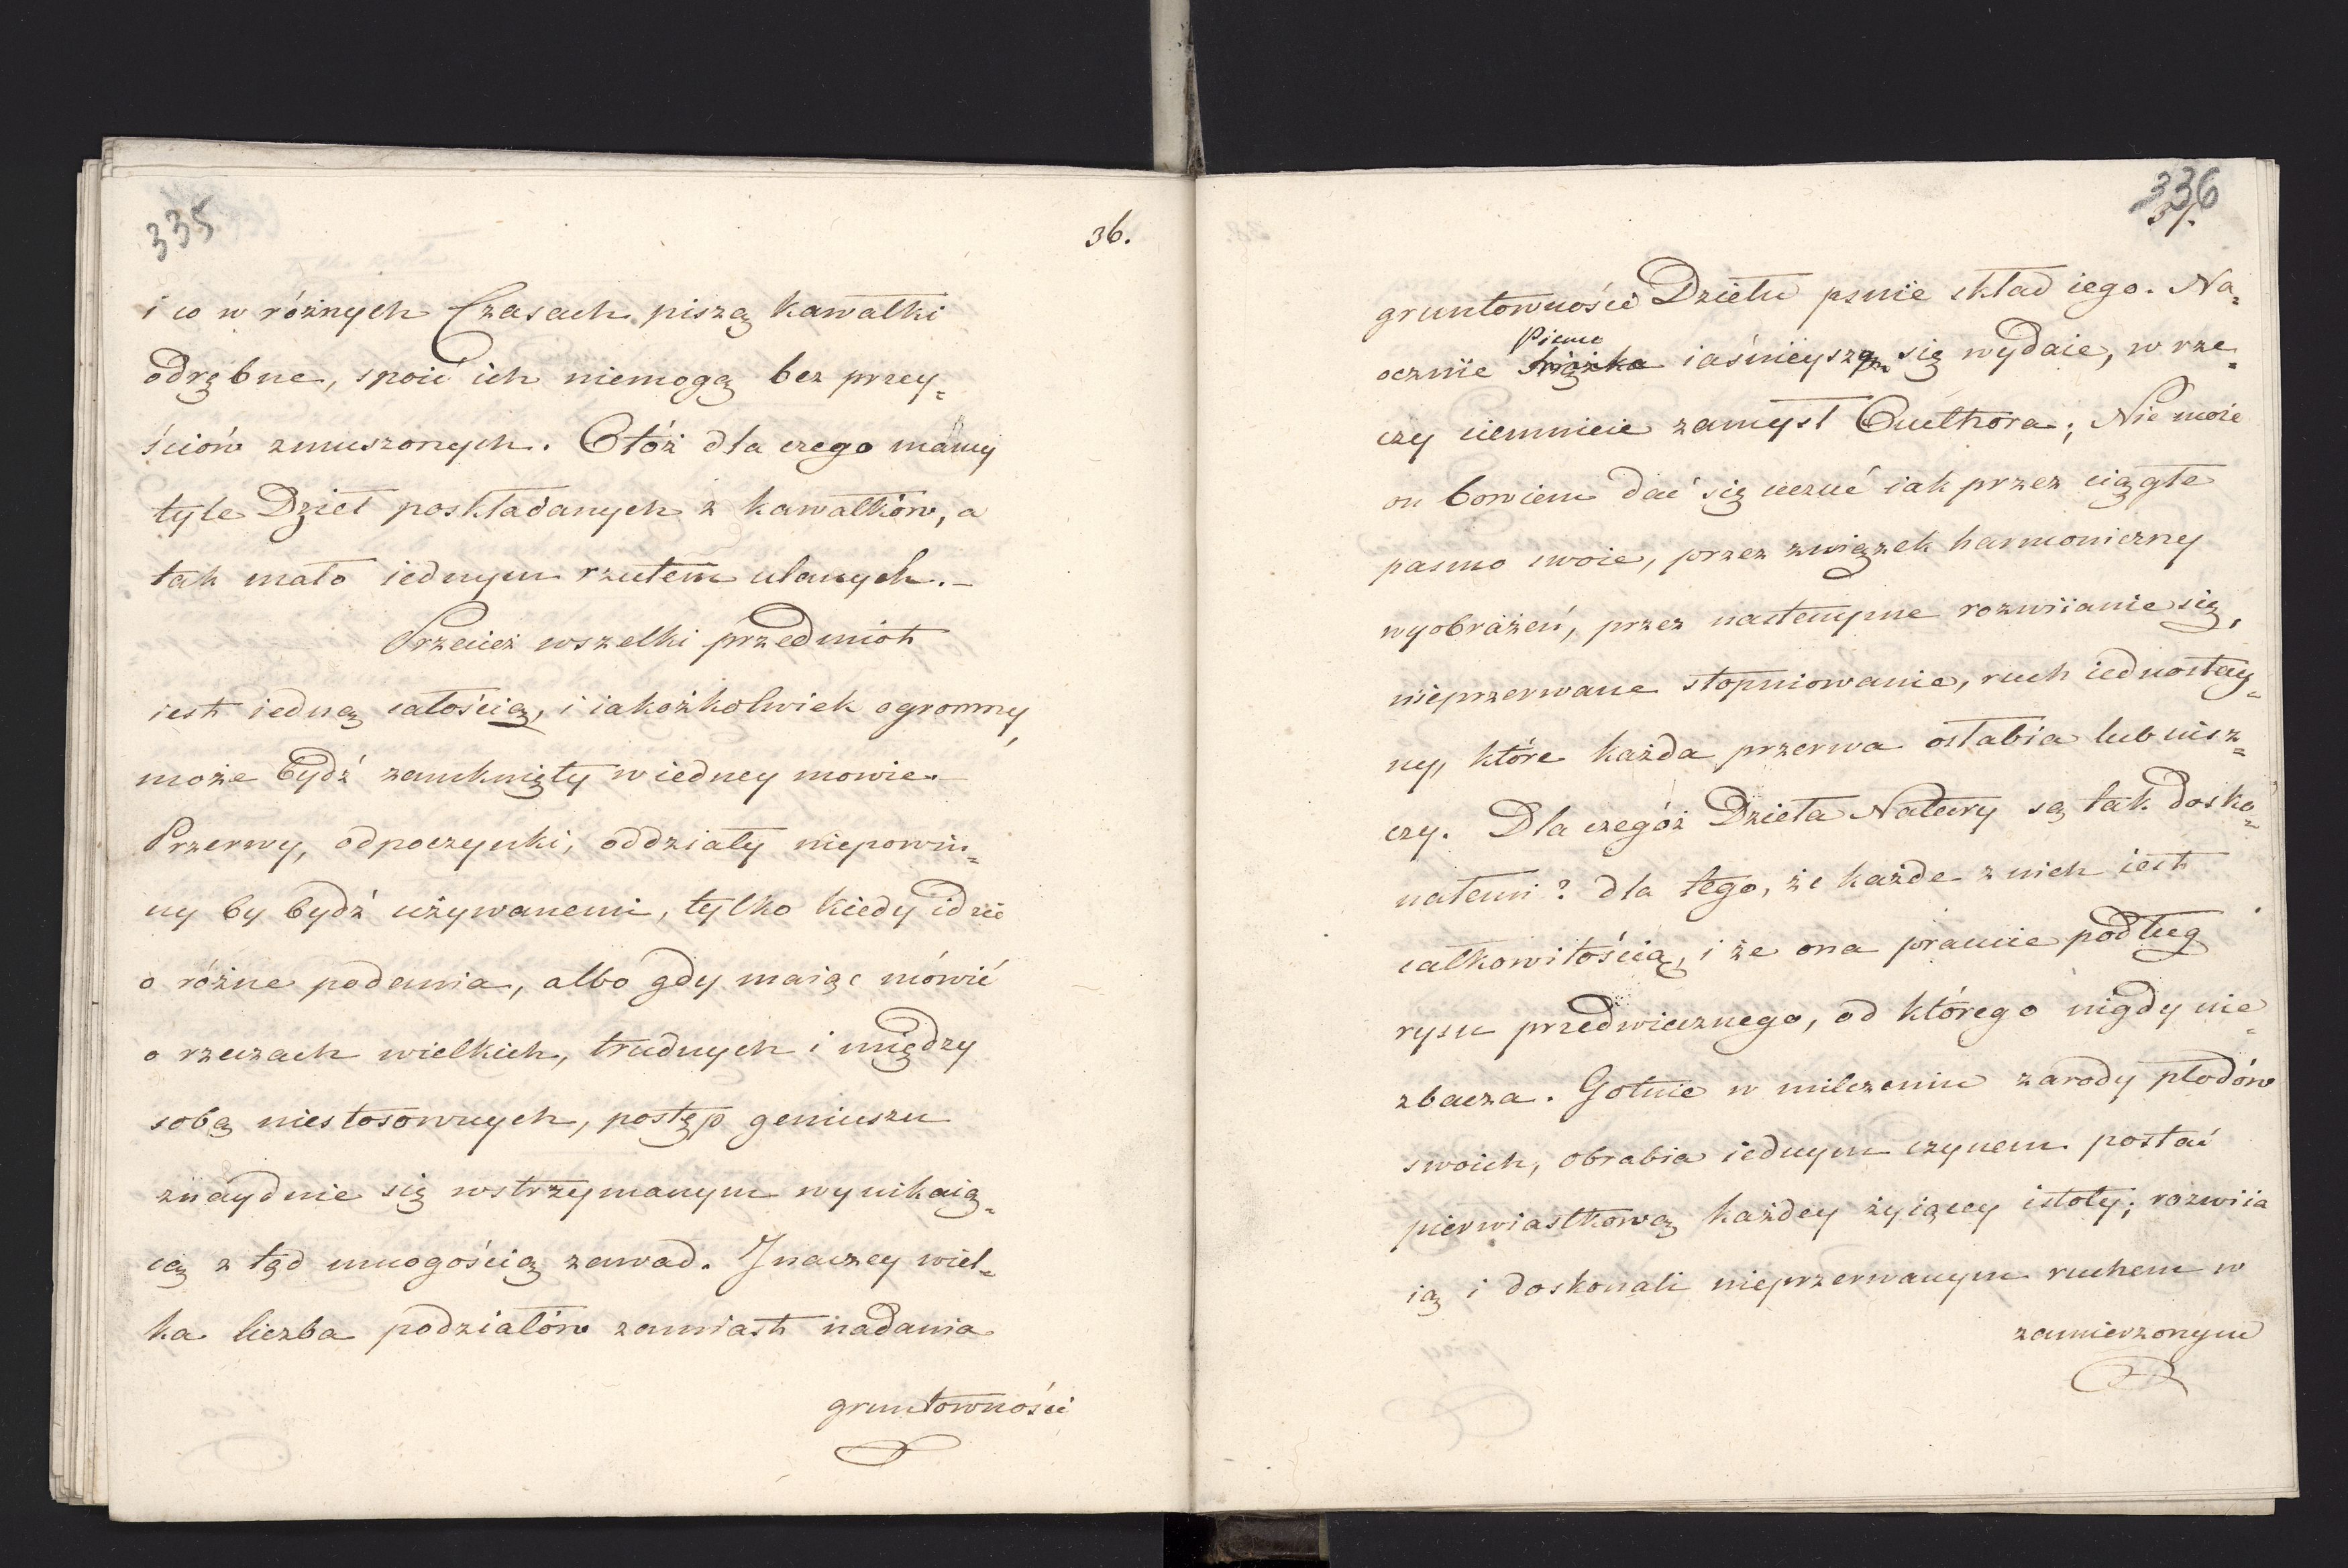 335
36.
i co w różnych Czasach piszą kawałki
odrębne, spoić ich niemogą bez przey=
ściów zmuszonych. Otóż dla czego mamy
tyle Dzieł poskładanych z kawałków, a
tak mało iednym rzutem ulanych.–
Przecież wszelki przedmiot
iest iedną całością, i iakożkolwiek ogromny,
może bydź zamknięty w iedney mowie.–
Przerwy, odpoczynki, oddziały niepowin=
ny by bydź używanemi, tylko kiedy idzie
o różne podania, albo gdy maiąc mówić
o rzeczach wielkich, trudnych i między
sobą niestosownych, postęp geniuszu
znaydnie się wstrzymanym wynikaią=
cą z tąd mnogością zawad. Inaczey wiel=
ka liczba podziałów zamiast nadania
gruntowności
336
37.
gruntowności Dziełu psuie skład iego. Na=
ocznie Pismo iaśnieysze się wydaie, w rze=
czy ciemnieie zamysł Authora; Nie może
on bowiem dać się uczuć iak przez ciągłe
pasmo swoie, przez związek harmoniczny
wyobrażeń, przez nastempne rozwiianie się,
nieprzerwane stopniowanie, ruch iednostay=
ny, które każda przerwa osłabia lub nisz=
czy. Dla czegóż Dzieła Natury są tak dosko=
nałemi? dla tego, że każde z nich iest
całkowitością, i że ona pracuie podług
rysu przedwiecznego, od którego nigdy nie=
zbacza. Gotuie w milczeniu zarody płodów
swoich, obrabia iednym czynem postać
pierwiastkową każdey żyiącey istoty; rozwiia
ią i doskonali nieprzerwanym ruchem w
zamierzonym